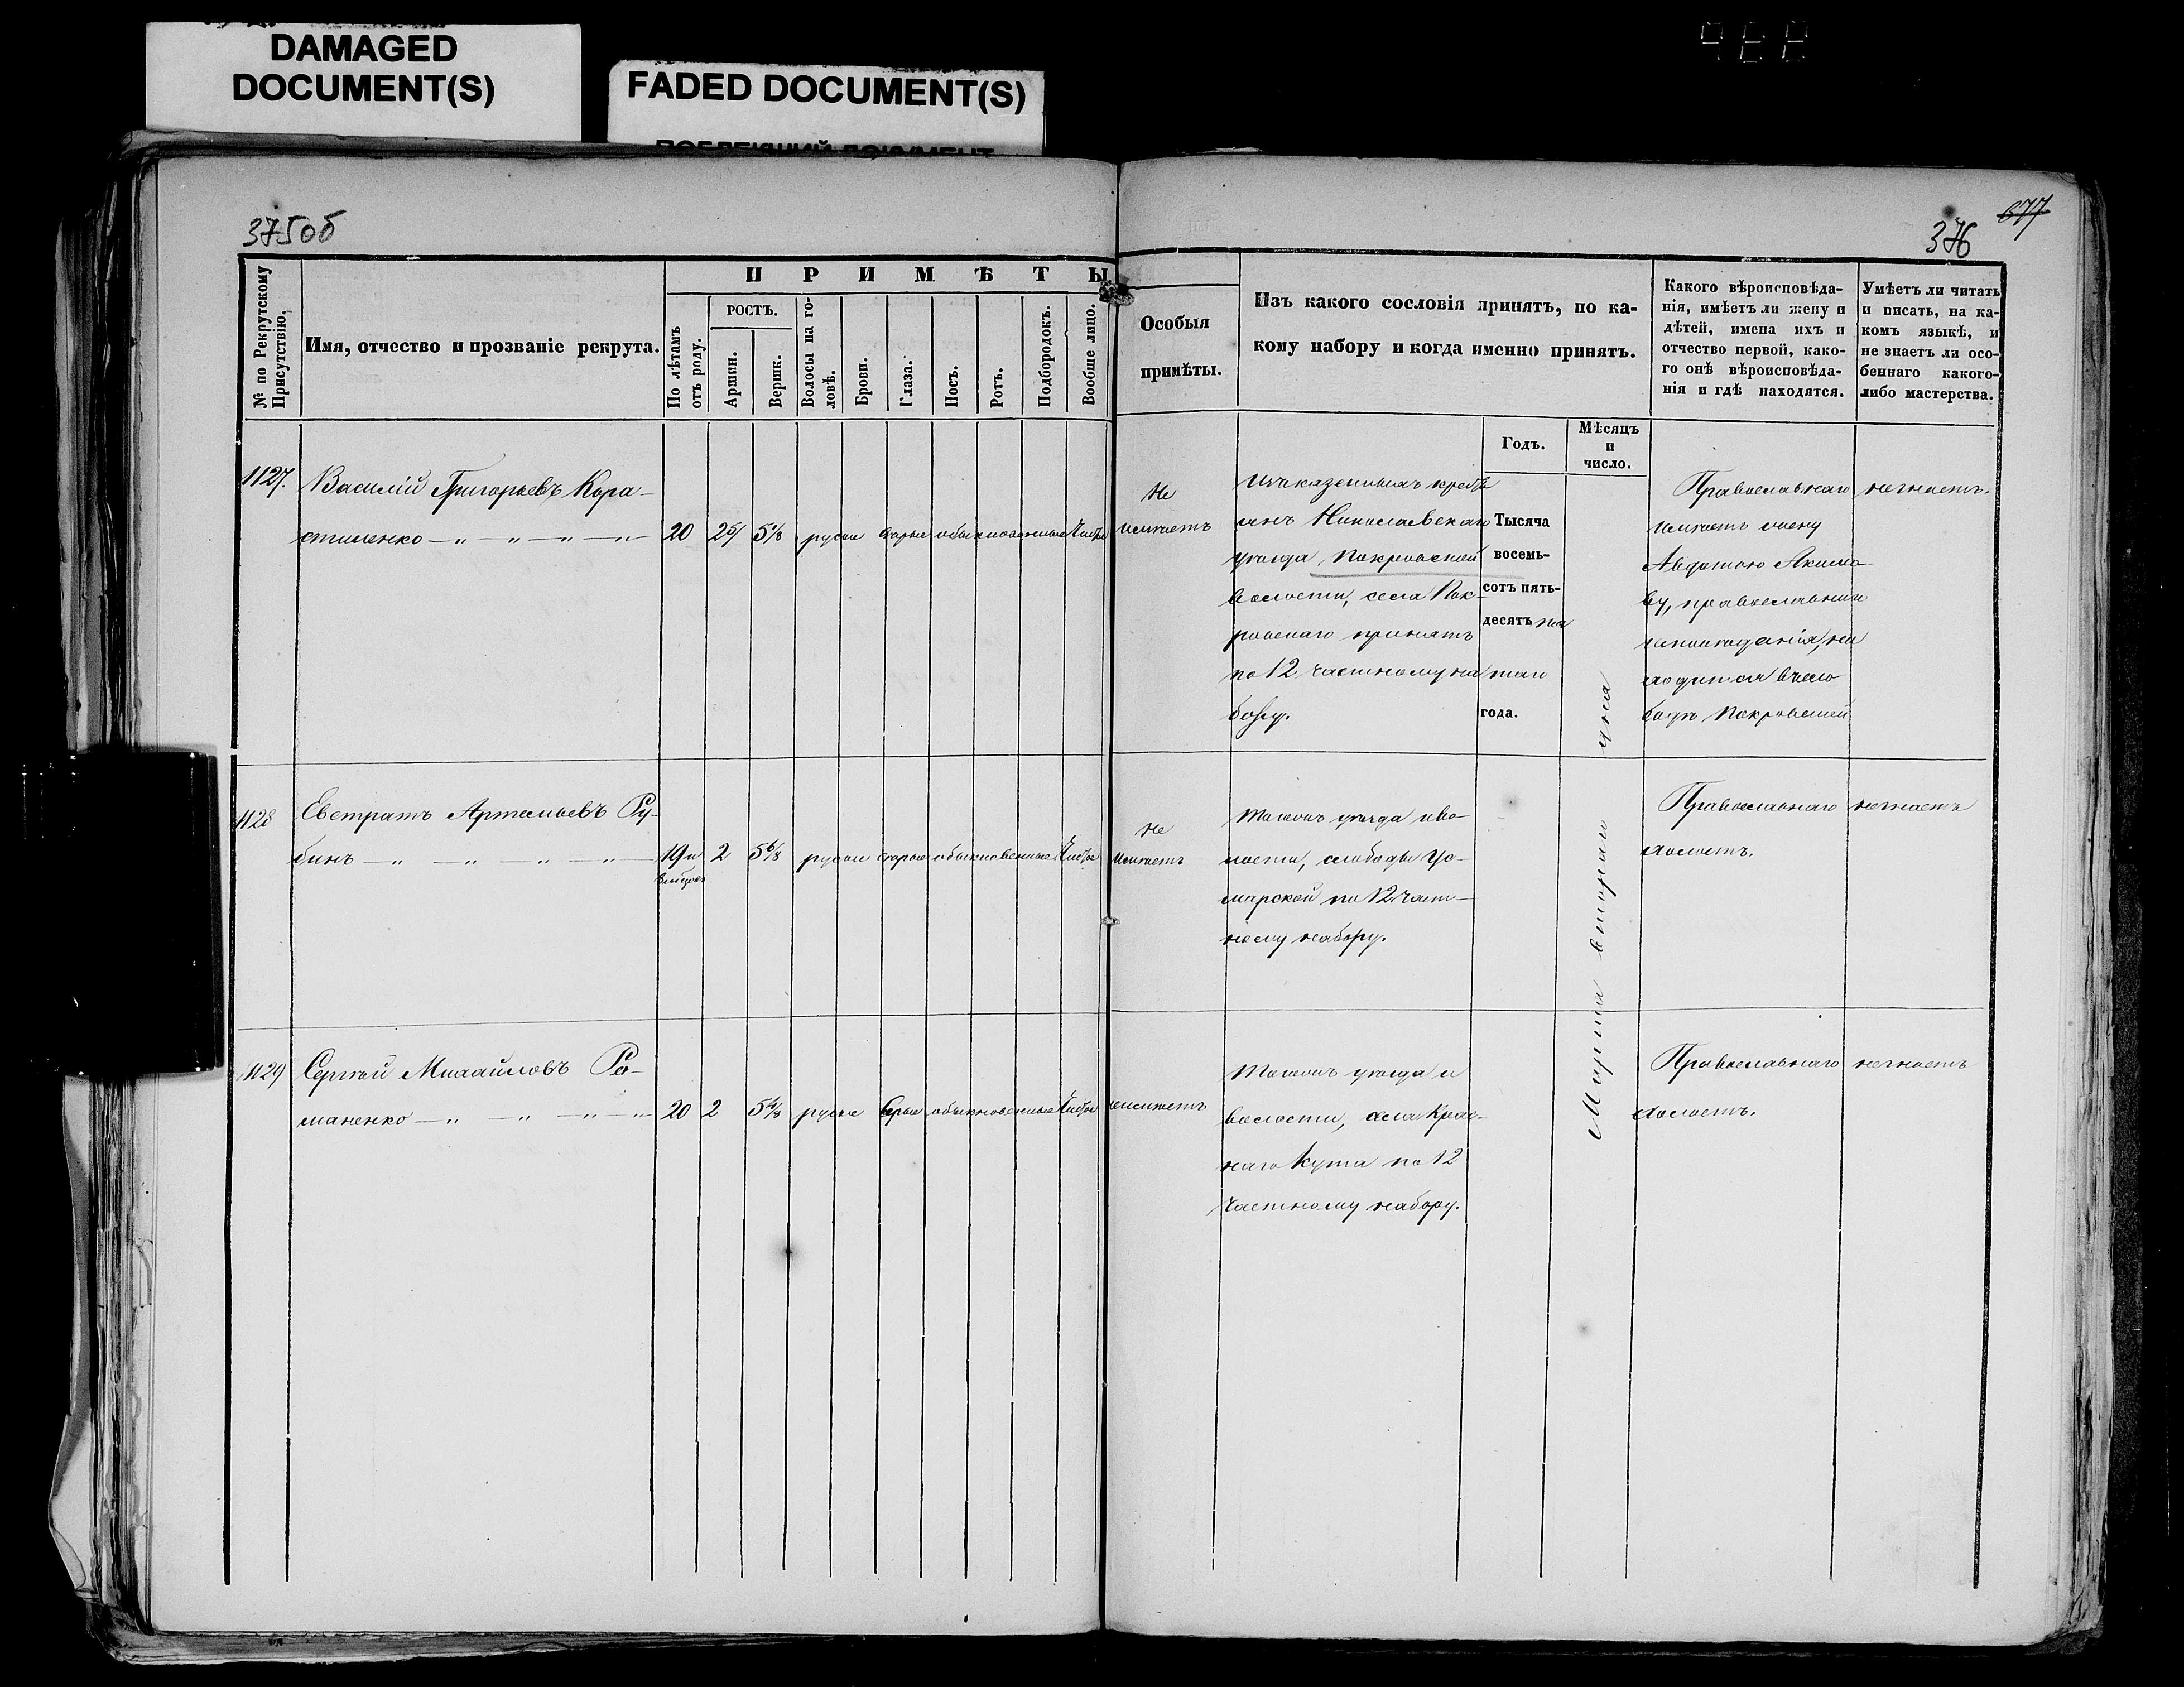 DAMAGED
DOCUMENT(S)
FADED DOCUMENT(S)
375об
677
376
№ по Рекрутскому Присутствію.
Имя, отчество и прозваніе рекрута.
ПРИМѢТЫ
По лѣтамъ отъ роду.
РОСТЪ.
Аршин.
Вершк.
Волосы на головѣ.
Брови.
Глаза.
Носъ.
Ротъ.
Подбородокъ.
Вообще лицо.
Особыя
примѣты.
Изъ какого сословія принятъ, по ка-
кому набору и когда именно принятъ.
Годъ.
Мѣсяцъ
и
число.
Какого вѣроисповѣда-
нія, имѣетъ ли жену и
дѣтей, имена ихъ и
отчество первой, како-
го онѣ вѣроисповѣда-
нія и гдѣ находятся.
Умѣетъ ли читать
и писать, на ка-
комъ языкѣ, и
не знаетъ ли осо-
беннаго какого-
либо мастерства.
1127.
Василій Григорьевъ Кора-
стиленко
20 2 5/8 русые серые обыкновенные Чистое
Не
имѣетъ
Изъ казенныхъ кресть
янъ Николаевскаго
уѣзда, Покровской
волости, села Пок-
ровскаго принятъ
по 12 частному на
бору.
Тысяча
восемь-
сотъ пять-
десятъ пя
таго
года.
Марта втораго дня
Православнаго
имѣетъ жену
Авдотью Якимо-
ву, православнаго
исповѣданія, на
ходится въ сло
бодѣ Покровской
незнаетъ.
1128
Евстратъ Артемьевъ Ру-
бинъ
19 и 2 5 6/8 русые серые обыкновенные Чистое
Не
имѣетъ
Тогожъ уѣзда и во-
лости, слободы Уз-
морской по 12 част-
ному набору.
Православнаго
холостъ.
незнаетъ
1129
Сергѣй Михайловъ Ро-
маненко
20 2 5 4/8 русые серые обыкновенные Чистое
неимѣетъ
Тогожъ уѣзда и
волости, села Крас-
наго Кута по 12
частному набору.
Православнаго
холостъ.
незнаетъ